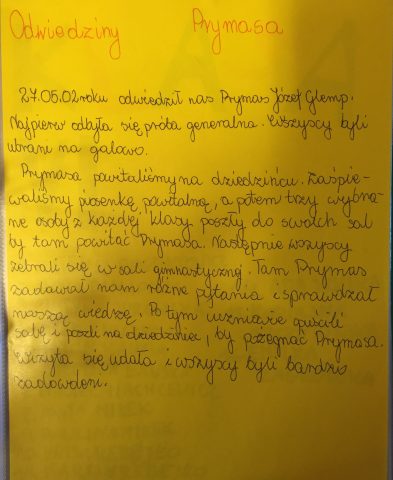 Odwiedziny Prymasa
27.05.02 roku odwiedził nas Prymas Józef Glemp.
Najpierw odbyła się próba generalna. Wszyscy byli
ubrani na galowo.
Prymasa powitaliśmy na dziedzińcu. Zaśpie-
waliśmy piosenkę powitalną, a potem trzy wybra-
ne osoby z każdej klasy poszły do swoich sal
by tam powitać Prymasa. Następnie wszyscy
zebrali się w sali gimnastycznej. Tam Prymas
zadawał nam różne pytania i sprawdzał
naszą wiedzę. Po tym uczniowie opuścili
salę i poszli na dziedziniec, by pożegnać Prymasa.
Wizyta się udała i wszyscy byli bardzo
zadowoleni.